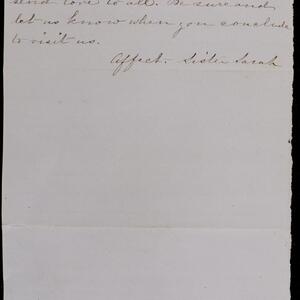 send love to all. Be sure and
let us know when you conclude
to visit us.
Affect. Sister Sarah